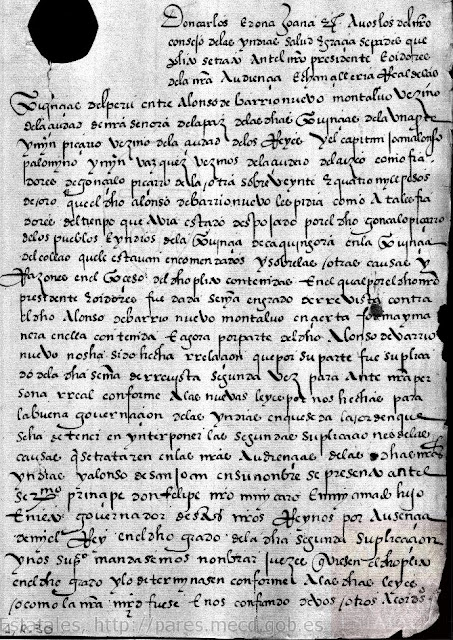 Don carlos E dona Joana &c A vos los del nro
consejo de las yndias salud E gracia sepades que
plito se trato Ante el nro presidente E oidores
de la nra Audiencia E chancilleria Real de las
provincias del peru entre Alonso de barrionuevo montalvo vezino
de la ciudad de nra señora de la paz de las dhas provincias de la una parte
y myn picarro vezino de la ciudad de los Reyes y el capitan joan alonso
palomino y myn vazquez vezinos de la ciudad del cuzco como fia
dores de gonçalo picarro de la otra sobre veynte E quatro myll pesos
de oro quel dho alonso de barrionuevo les pidia como A tales fia
dores del tienpo que Avia estado desposeido por el dho gonçalo picarro
de los pueblos E yndios de la provincia de en la provincia
del collao quel estavan encomendados y sobre las otras causas y
Razones en el proceso del dho plito contenidas En el qual por el dho nro
presidente E oidores fue dada senta en grado de rrevista contra
el dho Alonso de barrio nuevo montalvo en cierta forma y ma
nera en ella contenida E agora por parte del dho Alonso de barrio
nuevo nos ha sido hecha rrelacion que por su parte fue suplica
do de la dha senta de rrevista segunda vez para Ante nra per
sona rreal conforme A las nuevas leyes por nos hechas para
la buena governacion de las yndias en que se da la orden que
se ha de tener en ynterponer las segundas suplicaciones de las
causas q se trataren en las nras Audiencias de las dhas nras
yndias y alonso de san joan en su nonbre se presento ante el
serenmo principe don felipe nro muy caro E muy amado hijo
E nieto governador destos nros Reynos por Ausencia
de mi el Rey en el dho grado de la dha segunda suplicacion
y nos suplico mandasemos nonbrar juezes que viesen el dho plito
en el dho grado y lo determynasen conforme A las dhas leyes
o como la nra mrd fuese E nos confiando de vos otros
http://pares.mecd.gob.es